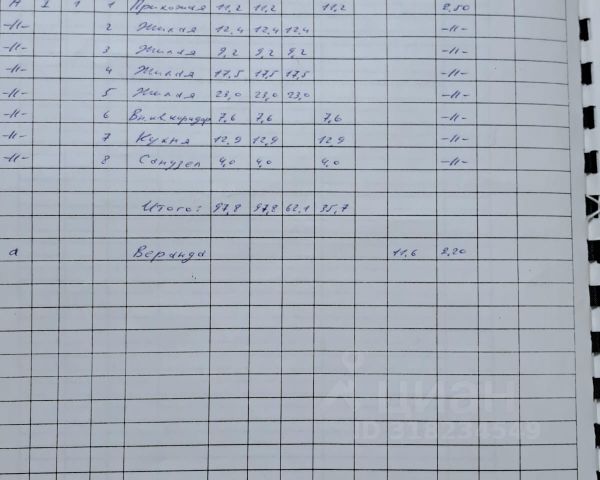 А 1 1 1 Прихожая 11,2 11,2 11,2 2,50
-//- 2 Жилая 12,4 12,4 12,4 -//-
-//- 3 Жилая 9,2 9,2 9,2 -//-
-//- 4 Жилая 17,5 17,5 17,5 -//-
-//- 5 Жилая 23,0 23,0 23,0 -//-
-//- 6 Вн.кв.коридор 7,6 7,6 7,6 -//-
-//- 7 Кухня 12,9 12,9 12,9 -//-
-//- 8 Санузел 4,0 4,0 4,0 -//-
Итого: 97,8 97,8 62,1 35,7
а Веранда 11,6 2,20
ЦИАН
ID 318234549